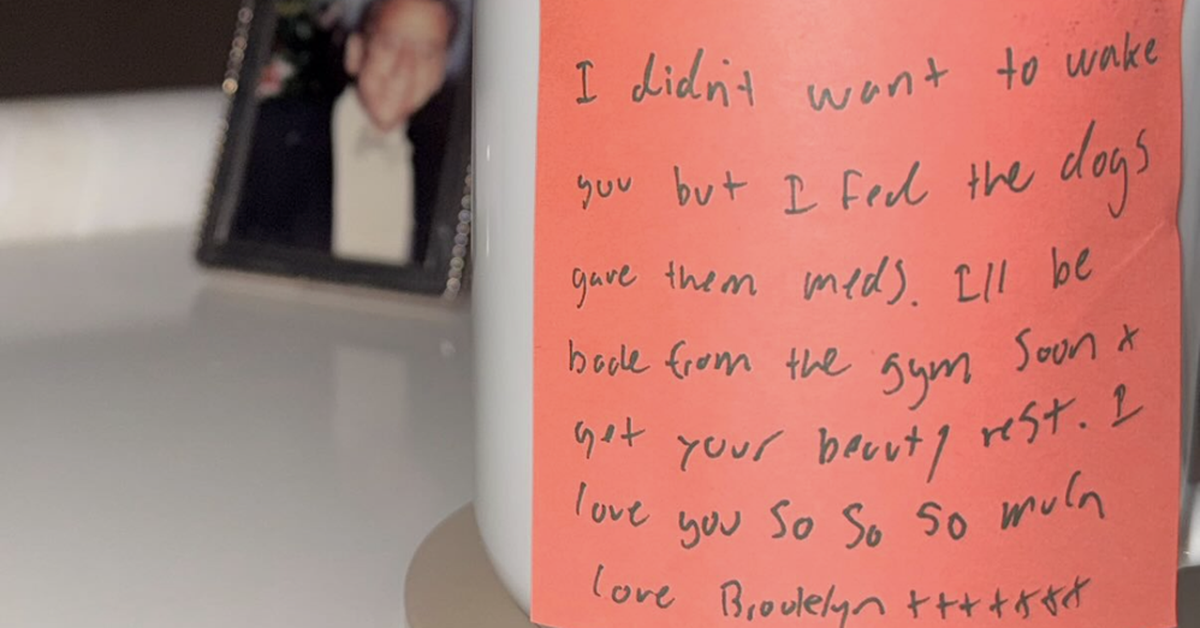 I didn't want to wake
you but I feed the dogs
gave them meds. I'll be
back from the gym soon x
get your beauty rest. I
love you so so so much
love Brooklyn +++++xxx